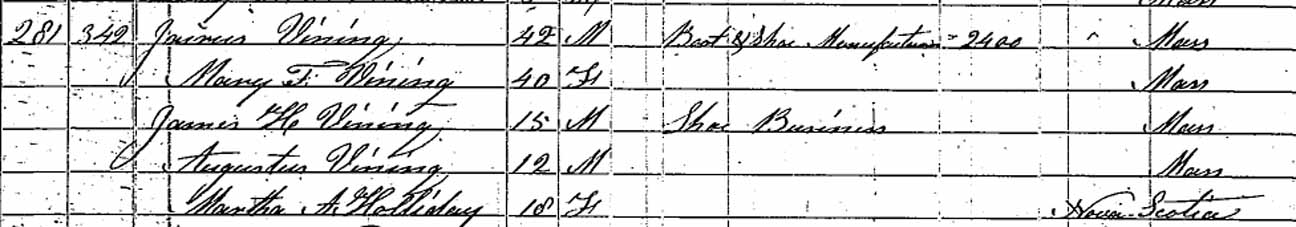 281 342 Jairus Vining 42 M Boot & Shoe Manufacturer 2400 " Mass
Mary F. Vining 40 F Mass
James H Vining 15 M Shoe Business Mass
Augustus Vining 12 M Mass
Martha A. Holliday 18 F Nova Scotia